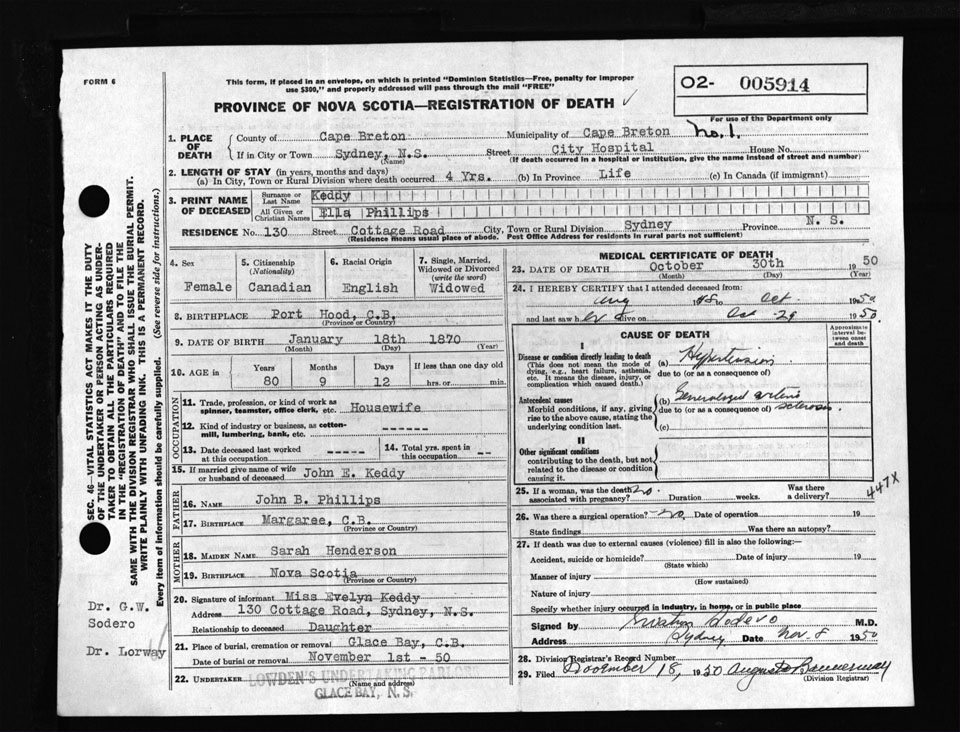 FORM 6
This form, if placed in an envelope, on which is printed "Dominion Statistics—Free, penalty for improper
use $300," and properly addressed will pass through the mail "FREE"
O2- 005914
For use of the Department only
PROVINCE OF NOVA SCOTIA—REGISTRATION OF DEATH ✓
No. 1.
1. PLACE OF DEATH { County of Cape Breton Municipality of Cape Breton
If in City or Town Sydney, N.S. (Name) Street City Hospital House No.
(If death occurred in a hospital or institution, give the name instead of street and number)
2. LENGTH OF STAY (in years, months and days)
(a) In City, Town or Rural Division where death occurred 4 Yrs. (b) In Province Life (c) In Canada (if immigrant)
3. PRINT NAME OF DECEASED { Surname or Last Name Keddy
All Given or Christian Names Ella Phillips
RESIDENCE No. 130 Street Cottage Road City, Town or Rural Division Sydney Province N. S.
(Residence means usual place of abode. Post Office Address for residents in rural parts not sufficient)
4. Sex Female
5. Citizenship (Nationality) Canadian
6. Racial Origin English
7. Single, Married, Widowed or Divorced (write the word) Widowed
8. BIRTHPLACE Port Hood, C.B.
(Province or Country)
9. DATE OF BIRTH January 18th 1870
(Month) (Day) (Year)
10. AGE in Years 80 Months 9 Days 12 If less than one day old hrs. or min.
OCCUPATION
11. Trade, profession, or kind of work as spinner, teamster, office clerk, etc. Housewife
12. Kind of industry or business, as cotton-mill, lumbering, bank, etc. ------
13. Date deceased last worked at this occupation ------
14. Total yrs. spent in this occupation --
15. If married give name of wife or husband of deceased John E. Keddy
FATHER
16. NAME John B. Phillips
17. BIRTHPLACE Margaree, C.B.
(Province or Country)
MOTHER
18. MAIDEN NAME Sarah Henderson
19. BIRTHPLACE Nova Scotia
(Province or Country)
20. Signature of informant Miss Evelyn Keddy
Address 130 Cottage Road, Sydney, N.S.
Relationship to deceased Daughter
21. Place of burial, cremation or removal Glace Bay, C.B.
Date of burial or removal November 1st - 50
22. UNDERTAKER LOWDEN'S UNDERTAKING PARLORS
(Name and address)
GLACE BAY, N. S.
MEDICAL CERTIFICATE OF DEATH
23. DATE OF DEATH October 30th 1950
(Month) (Day) (Year)
24. I HEREBY CERTIFY that I attended deceased from:
Aug 1948 to Oct. 1950
and last saw her alive on Oct - 29 1950.
CAUSE OF DEATH
Approximate interval between onset and death
I
Disease or condition directly leading to death
(This does not mean the mode of dying, e.g., heart failure, asthenia, etc. It means the disease, injury, or complication which caused death.)
(a) Hypertension
due to (or as a consequence of)
Antecedent causes
Morbid conditions, if any, giving rise to the above cause, stating the underlying condition last.
(b) Generalized arterio
due to (or as a consequence of) sclerosis.
(c)
II
Other significant conditions
contributing to the death, but not related to the disease or condition causing it.
25. If a woman, was the death associated with pregnancy? no. Duration weeks. Was there a delivery?
447X
26. Was there a surgical operation? no. Date of operation 19
State findings Was there an autopsy?
27. If death was due to external causes (violence) fill in also the following:—
Accident, suicide or homicide? Date of injury 19
(State which)
Manner of injury
(How sustained)
Nature of injury
Specify whether injury occurred in industry, in home, or in public place
Signed by Sodero M.D.
Address Sydney Date Nov. 8 1950
28. Division Registrar's Record Number
29. Filed November 18, 1950 Bannerman
(Division Registrar)
SEC. 46—VITAL STATISTICS ACT MAKES IT THE DUTY
OF THE UNDERTAKER OR PERSON ACTING AS UNDER-
TAKER TO OBTAIN ALL THE PARTICULARS REQUIRED
IN THE "REGISTRATION OF DEATH" AND TO FILE THE
SAME WITH THE DIVISION REGISTRAR WHO SHALL ISSUE THE BURIAL PERMIT.
WRITE PLAINLY WITH UNFADING INK. THIS IS A PERMANENT RECORD.
Every item of information should be carefully supplied. (See reverse side for instructions.)
Dr. G.W.
Sodero
Dr. Lorway